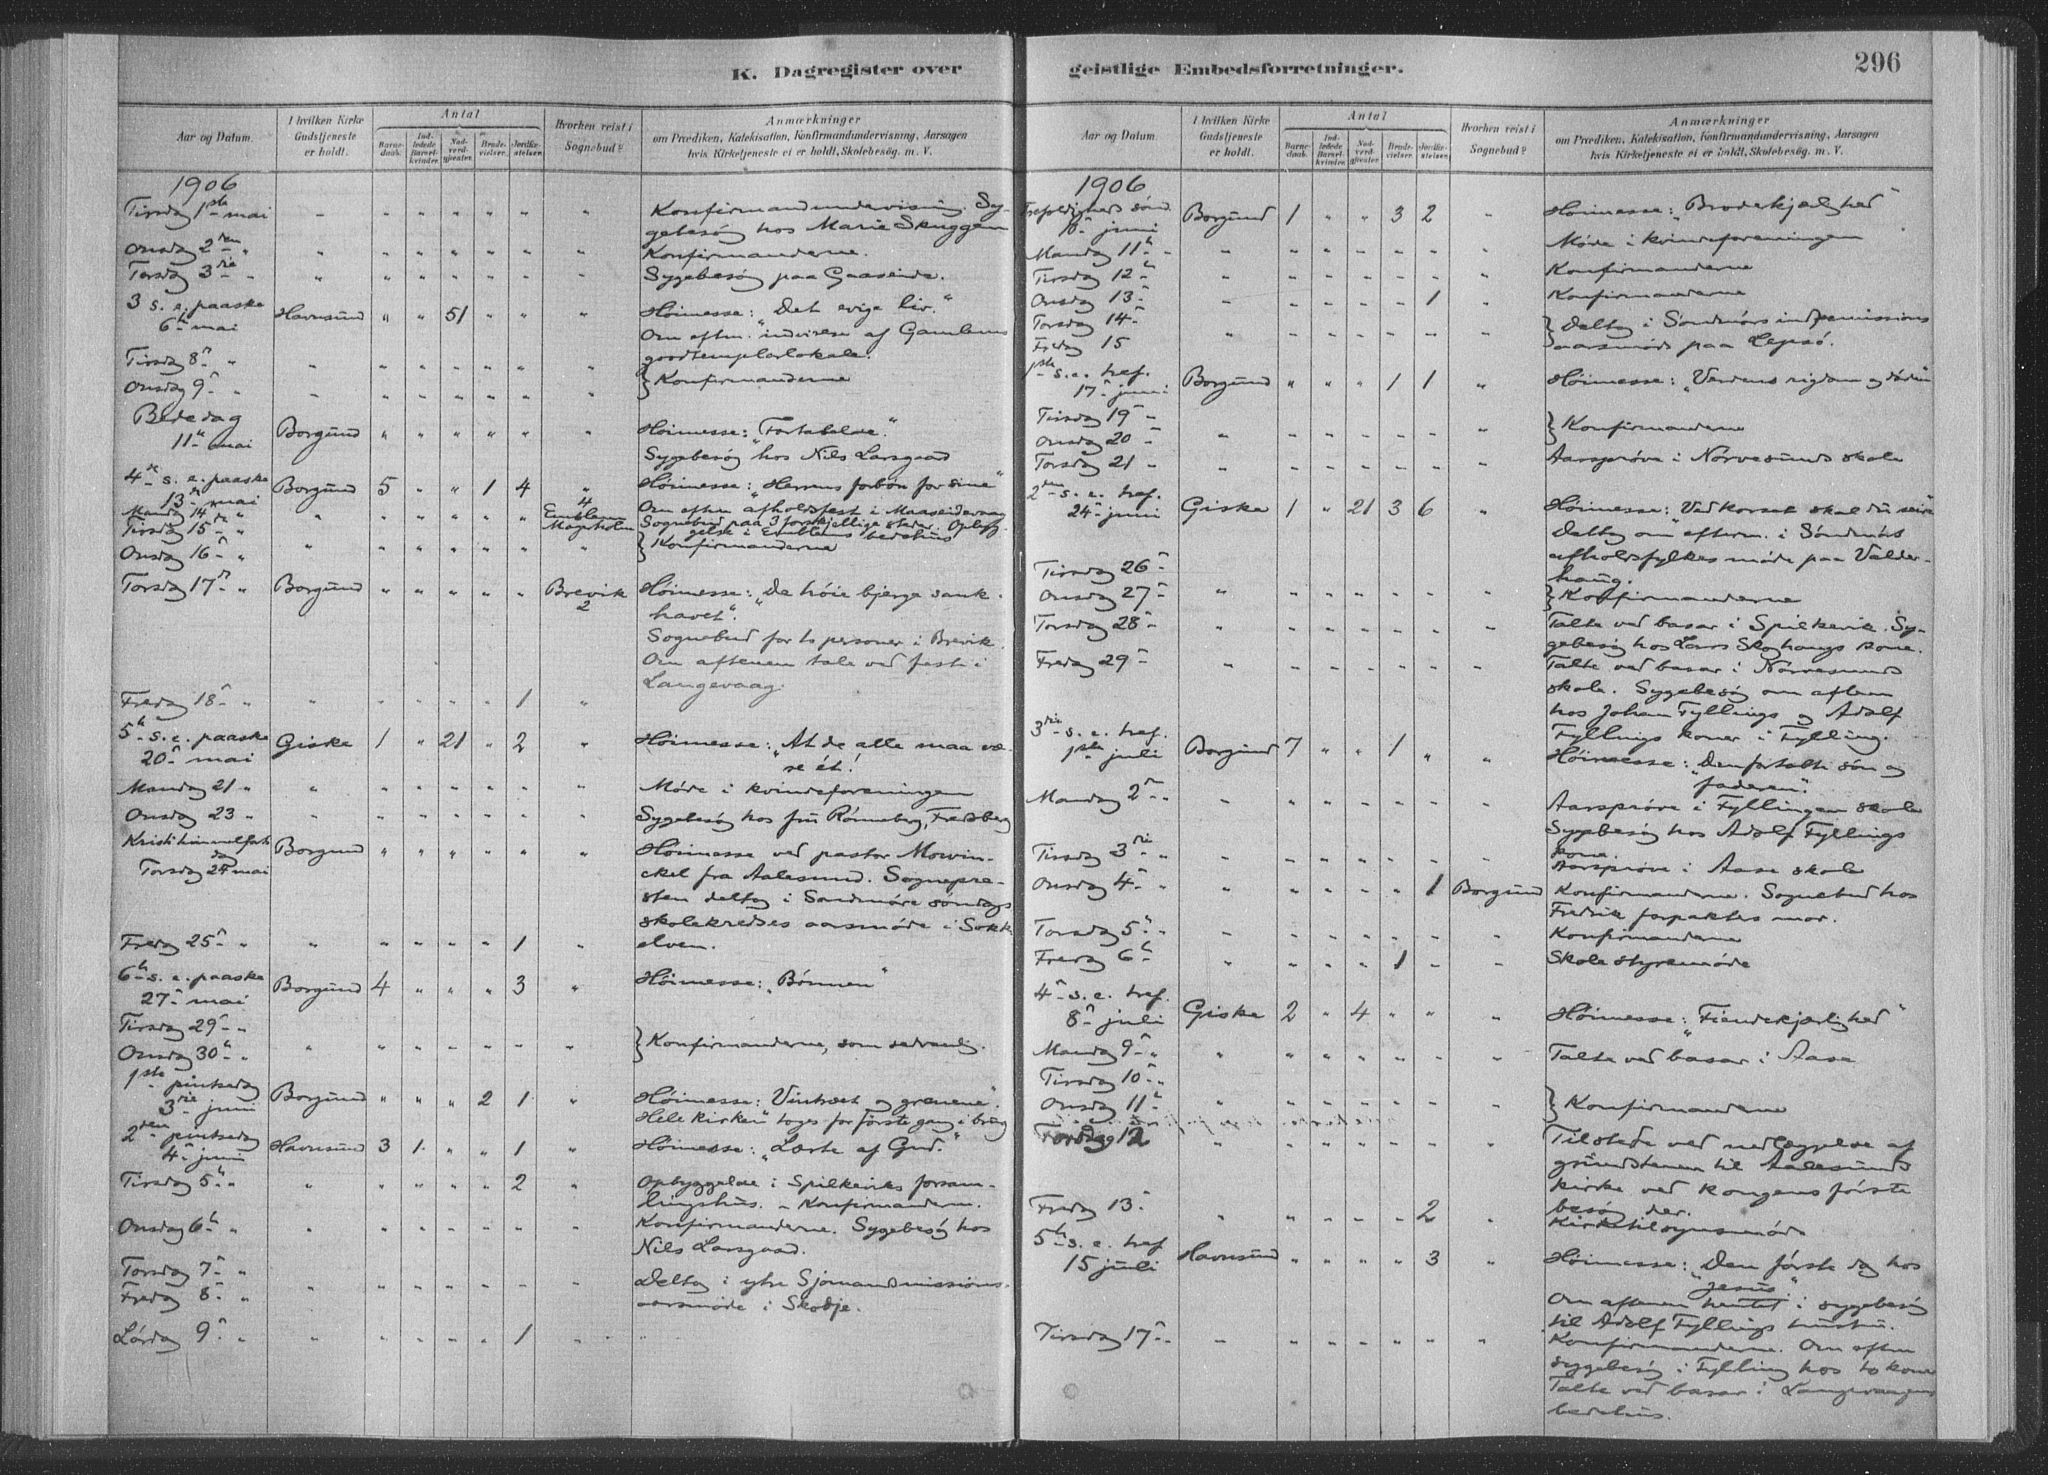 K. Dagregister over
Aar og Datum.
I hvilken Kirke Gudstjeneste er holdt.
Antal
Barnedaab.
Indledede Barselkvinder.
Nadverdgjester.
Brudevielser.
Jordfæstelser.
Hvorhen reist i Sognebud?
Anmærkninger
om Prædiken, Katekisation, Konfirmandundervisning, Aarsagen
hvis Kirketjeneste ei er holdt, Skolebesøg. m. V.
1906
Tirsdag 1ste mai " " " " " " " Konfirmandundervisning. Sy-
gebesøg hos Marie Skuggen
Onsdag 2den " " " " " " " " Konfirmanderne.
Torsdag 3die " " " " " " " " Sygebesøg paa Gaaseide.
3 s. e. paaske
6te mai Havnsund " " 51 " " " Høimesse: "Det evige liv."
Om eftm. indvielse af Gamlems
goodtemplarlokale.
Tirsdag 8de " " " " " " " "
Onsdag 9de " " " " " " " " } Konfirmanderne
Bededag
11te mai Borgund " " " " " " Høimesse: "Fortabelse."
Sygebesøg hos Nils Larsgaard
4de s. e. paaske
13de mai Borgund 5 " " 1 4 " Høimesse: "Herrens forbøn for sine"
Mandag 14de " " " " " " " 4 Emblem Magerholm Om eftm afholdsfest i Maaseidevaag
Tirsdag 15de " Sognebud paa 3 forskjellige steder. Opbyg-
gelse i Emblems bedehus
Onsdag 16de " " " " " " " " } Konfirmanderne
Torsdag 17de " Borgund " " " " " Brevik 2 Høimesse: "De høie bjerge sank i
havet".
Sognebud for to personer i Brevik.
Om aftenen tale ved fest i
Langevaag.
Fredag 18de " " " " " " 1 "
5te s. e. paaske
20de mai Giske 1 " 21 " 2 " Høimesse: "At de alle maa væ-
re ét!
Mandag 21 " " " " " " " " Møde i kvindeforeningen
Onsdag 23 " " " " " " " " Sygebesøg hos fru Rønneberg, Fredsberg
Kristi himmelfarts
dag
Torsdag 24de mai Borgund " " " " " " Høimesse ved pastor Mowin-
ckel fra Aalesund. Sognepre-
sten deltog i Søndmøre søndags
skolekredses aarsmøde i Sokk-
elven.
Fredag 25de " " " " " " 1 "
6te s. e. paaske
27de mai Borgund 4 " " " 3 " Høimesse: "Bønnen"
Tirsdag 29de "
Onsdag 30te " " " " " " " " } Konfirmanderne, som sedvanlig.
1ste pintsedag
3die juni Borgund " " " 2 1 " Høimesse: Vintræet og grenene".
Hele kirken toges for første gang i brug
2den pintsedag
4de juni Havnsund 3 1 " " 1 " Høimesse: "Lærte af Gud."
Tirsdag 5te " " " " " " 2 " Opbyggelse i Spilkeviks forsam-
lingshus. - Konfirmanderne.
Onsdag 6te " " " " " " " " Konfirmanderne. Sygebesøg hos
Nils Larsgaard.
Torsdag 7de "
Fredag 8de " " " " " " " " Deltog i ytre Sjømandsmissions-
aarsmøde i Skodje.
Lørdag 9de " " " " " " 1 "
geistlige Embedsforretninger.
296
Aar og Datum.
I hvilken Kirke Gudstjeneste er holdt.
Antal
Barnedaab.
Indledede Barselkvinder.
Nadverdgjester.
Brudevielser.
Jordfæstelser.
Hvorhen reist i Sognebud?
Anmærkninger
om Prædiken, Katekisation, Konfirmandundervisning, Aarsagen
hvis Kirketjeneste ei er holdt, Skolebesøg. m. V.
1906
Trefoldigheds sønd.
10de juni Borgund 1 " " 3 2 " Høimesse: "Broderkjærlighed"
Mandag 11te " " " " " " " " Møde i kvindeforeningen
Tirsdag 12te " " " " " " " Konfirmanderne
Onsdag 13de " " " " " " 1 " Konfirmanderne
Torsdag 14de
Fredag 15 " " " " " " " } Deltog i Søndmørs indremissions
aarsmøde paa Lepsø.
1ste s. e. tref.
17de juni Borgund " " " 1 1 " Høimesse: "Verdens rigdom og døden"
Tirsdag 19de "
Onsdag 20de " " " " " " " } Konfirmanderne
Torsdag 21 " " " " " " " " Aarsprøve i Nørvesunds skole
2den s. e. tref.
24de juni Giske 1 " 21 3 6 " Høimesse: "Ved korset skal du seire"
Deltog om efterm. i Søndmørs
afholdsfylkes møde paa Valder-
haug.
Tirsdag 26de
Onsdag 27de " " " " " " " } Konfirmanderne
Torsdag 28de " " " " " " " Talte ved basar i Spilkevik. Sy-
gebesøg hos Lars Skoghaugs kone.
Fredag 29de " " " " " " " Talte ved basar i Nørvesunds
skole. Sygebesøg om aftenen
hos Johan Fyllings og Adolf
Fyllings koner i Fylling.
3die s. e. tref.
1ste juli Borgund 7 " " 1 " " Høimesse: "Den fortabte søn og
faderen".
Mandag 2den " " " " " " " " Aarsprøve i Fyllingen skole
Sygebesøg hos Adolf Fyllings
kone.
Tirsdag 3die " " " " " " " " Aarsprøve i Aase skole
Onsdag 4de " " " " " " 1 Borgund Konfirmanderne. Sognebud hos
Fredrik forpakters mor.
Torsdag 5te " " " " " " " " Konfirmanderne
Fredag 6te " " " " " 1 " " Skolestyremøde
4de s. e. tref.
8de juli Giske 2 " 4 " " " Høimesse: "Fiendekjærlighed"
Mandag 9de " " " " " " " " Talte ved basar i Aase
Tirsdag 10de "
Onsdag 11te " " " " " " " } Konfirmanderne
Torsdag 12 " " " " " " " Tilstede ved nedlæggelse af
grundstenen til Aalesunds
kirke ved kongens første
besøg der.
Fredag 13de " " " " " 2 " Kirketilsynsmøde
5te s. e. tref
15 juli Havnsund " " " " 3 " Høimesse: "Den første dag hos
Jesus".
Om aftenen hentet i sygebesøg
til Adolf Fyllings hustru.
Tirsdag 17de " " " " " " " " Konfirmanderne. Om eftm
sygebesøg i Fylling hos to koner
Talte ved basar i Langevaagens
bedehus.